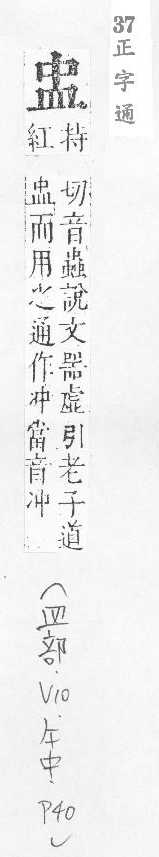 37
正字通
盅
持
紅
切音蟲說文器虛引老子道
盅而用之通作冲當音冲
(皿部.V10.午中.P40)